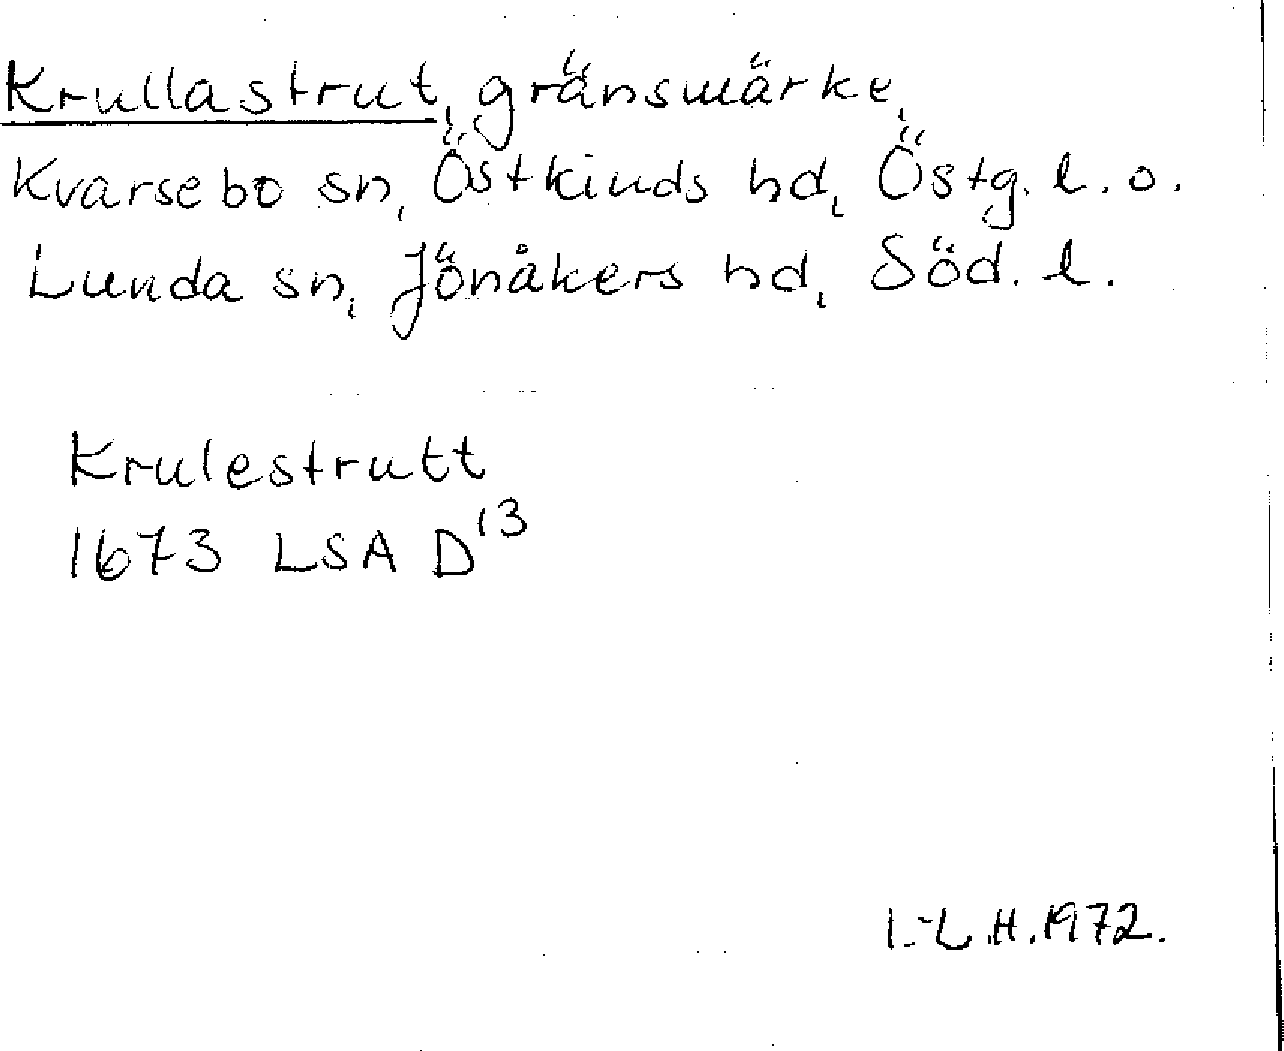 Krullastrut, gränsmärke,
Kvarsebo sn, Östkinds hd, Östg. l. o.
Lunda sn, Jönåkers hd, Söd. l.
Krulestrutt
1673 LSA D¹³
I.-L.H. 1972.